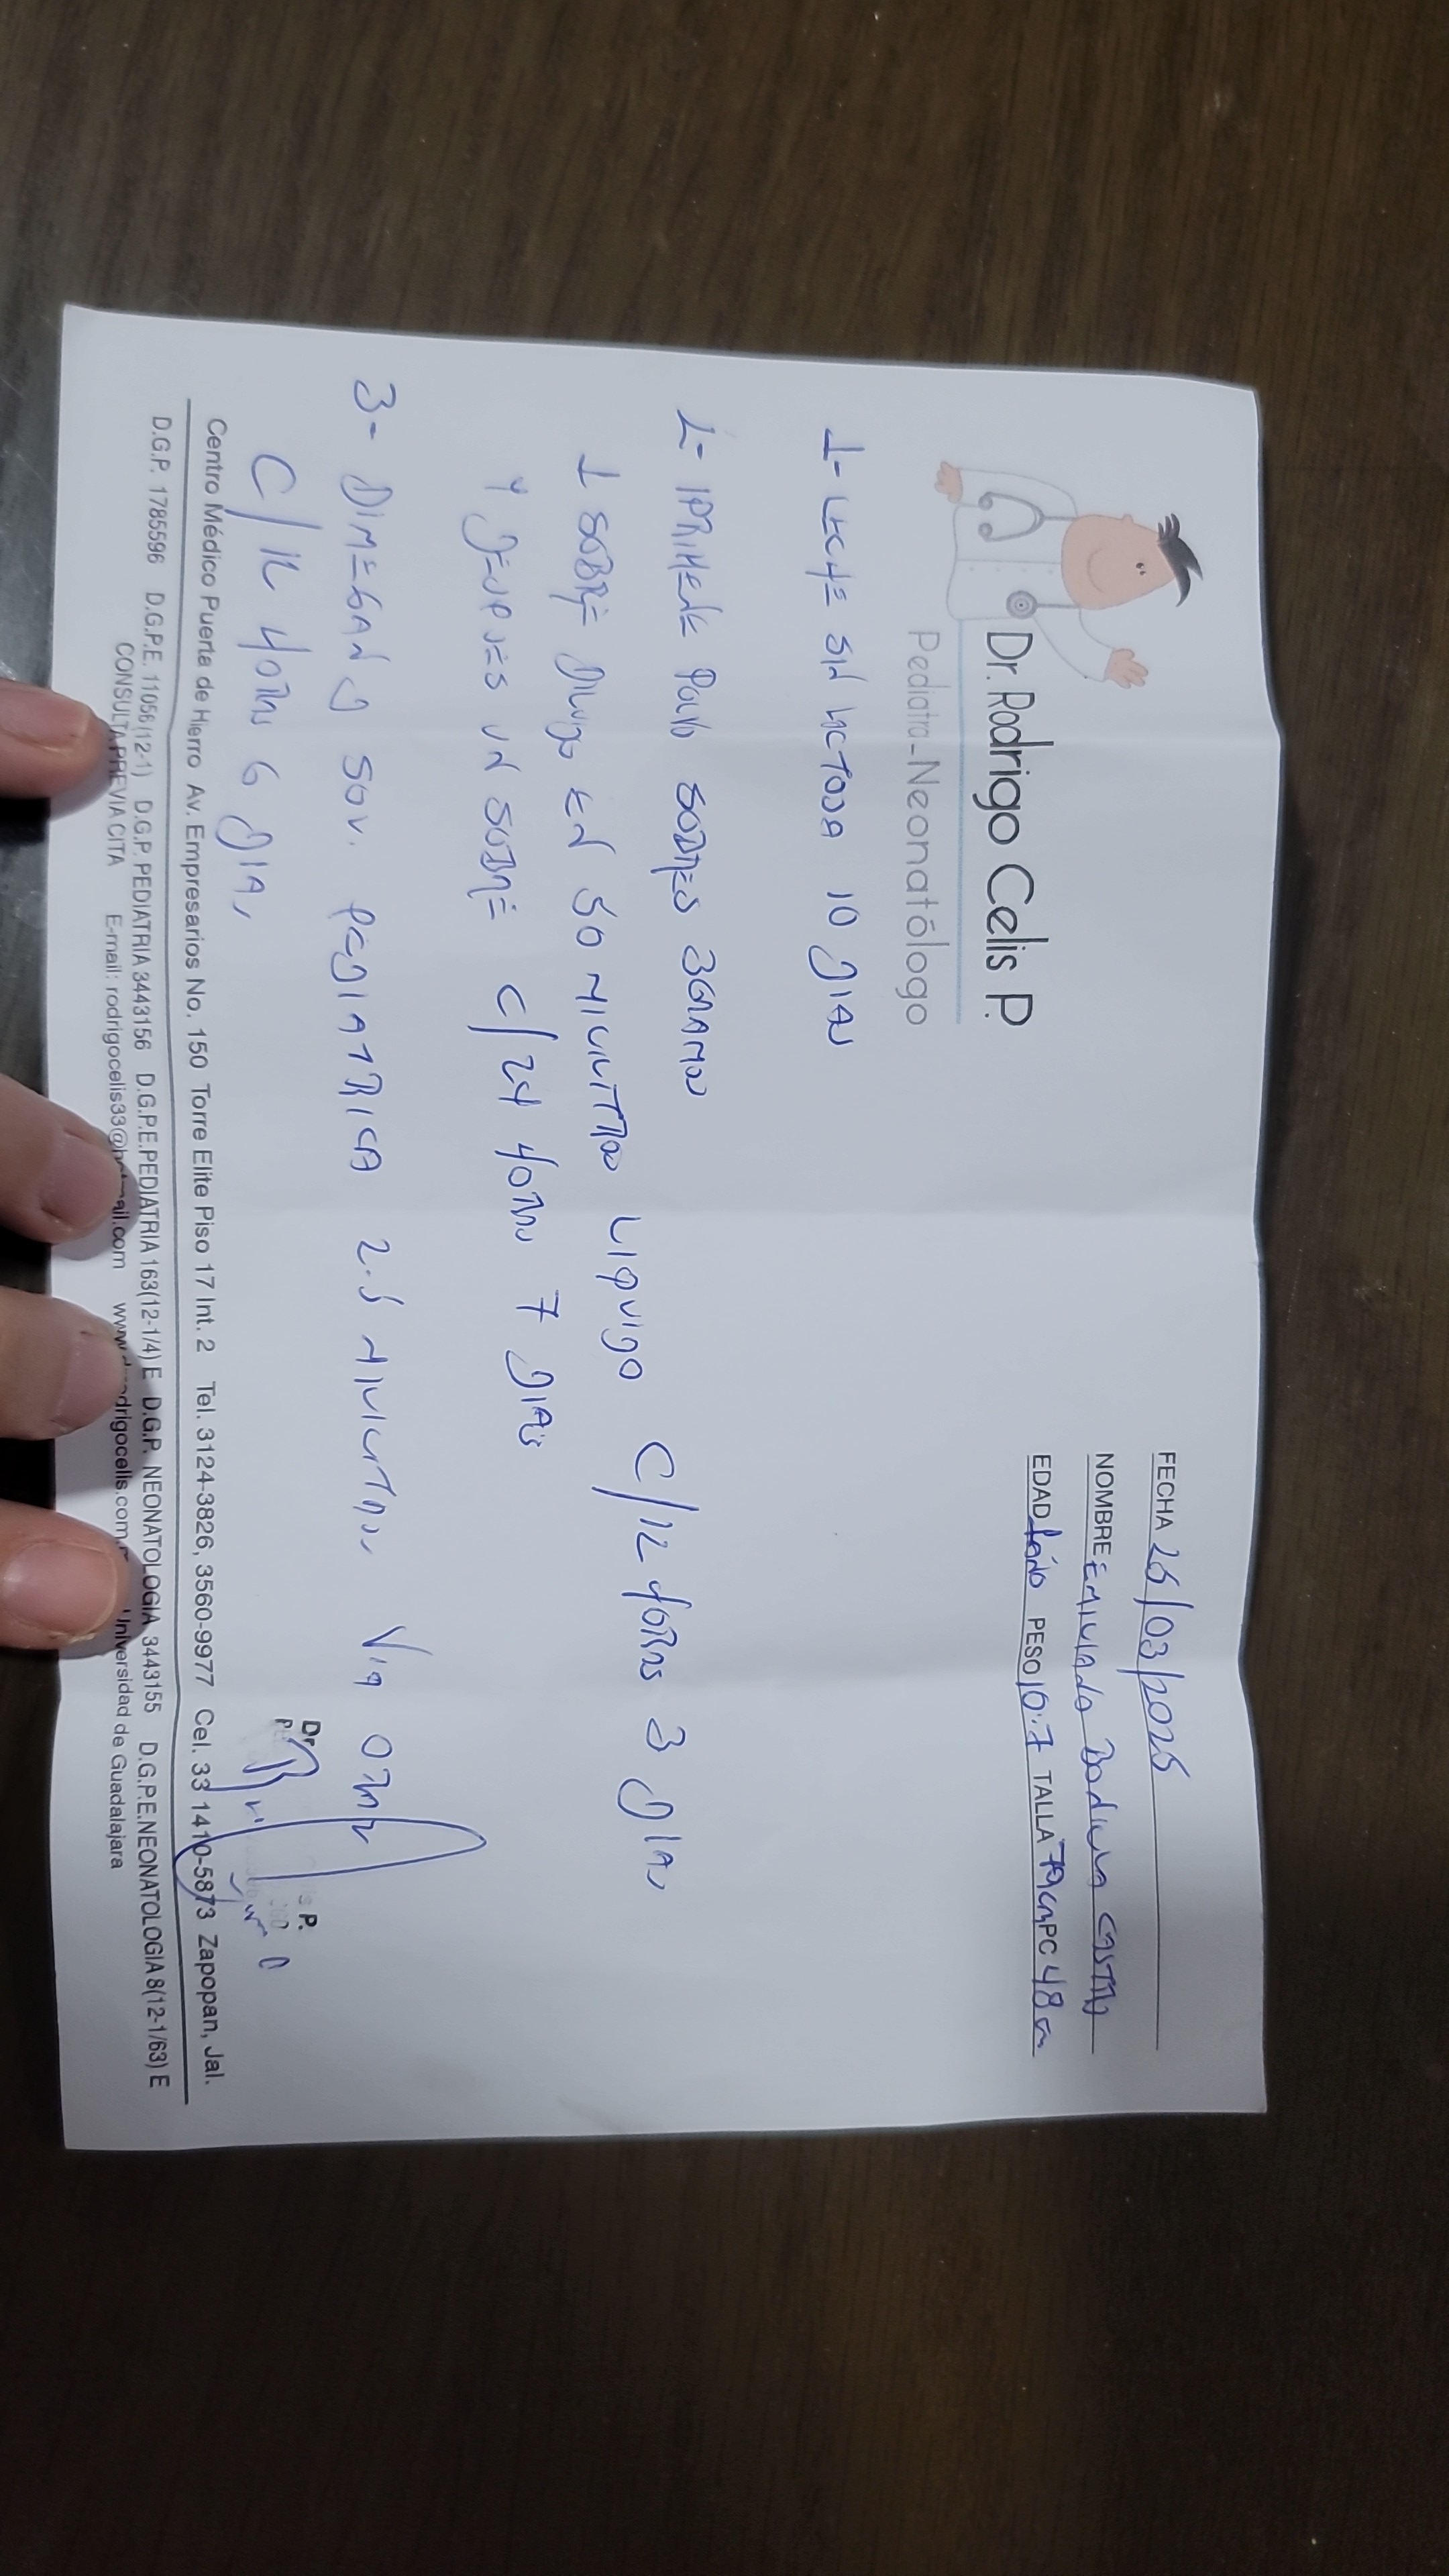 Dr. Rodrigo Celis P.
Pediatra-Neonatólogo
FECHA 25/03/2025
NOMBRE EMILIANO CASTRO
EDAD 1 año PESO 10.7 TALLA 79cm PC 48cm
1- LECHE SIN LACTOSA 10 DIAS
2- POLVO SOBRES 3 GRAMOS
1 SOBRE DILUIDO EN 50 MILILITROS LIQUIDO C/12 HORAS 3 DIAS
Y DESPUES UN SOBRE C/24 HORAS 7 DIAS
3- DIMEGAN D SOL. PEDIATRICA 2.5 MILILITROS VIA ORAL
C/12 HORAS 6 DIAS
Dr. P.
Centro Médico Puerta de Hierro Av. Empresarios No. 150 Torre Elite Piso 17 Int. 2 Tel. 3124-3826, 3560-9977 Cel. 33 1410-5873 Zapopan, Jal.
D.G.P. 1785596 D.G.P.E. 11056 (12-1) D.G.P. PEDIATRIA 3443156 D.G.P.E.PEDIATRIA 163(12-1/4) E D.G.P. NEONATOLOGIA 3443155 D.G.P.E.NEONATOLOGIA 8(12-1/63) E
CONSULTA PREVIA CITA E-mail: rodrigocelis33@hotmail.com Universidad de Guadalajara